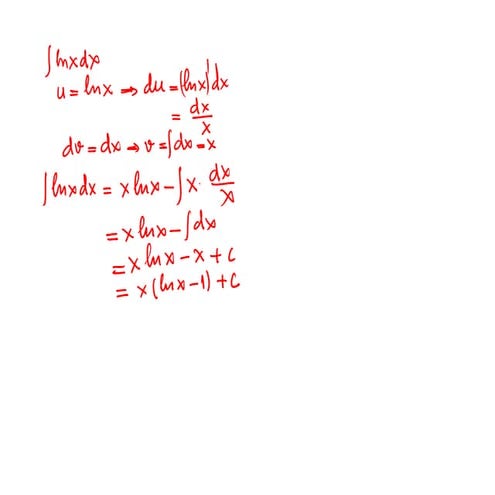 ∫ lnx dx
u = lnx → du = (lnx)' dx
= dx/x
dv = dx → v = ∫dx = x
∫ lnx dx = x lnx − ∫ x · dx/x
= x lnx − ∫dx
= x lnx − x + c
= x (lnx − 1) + c